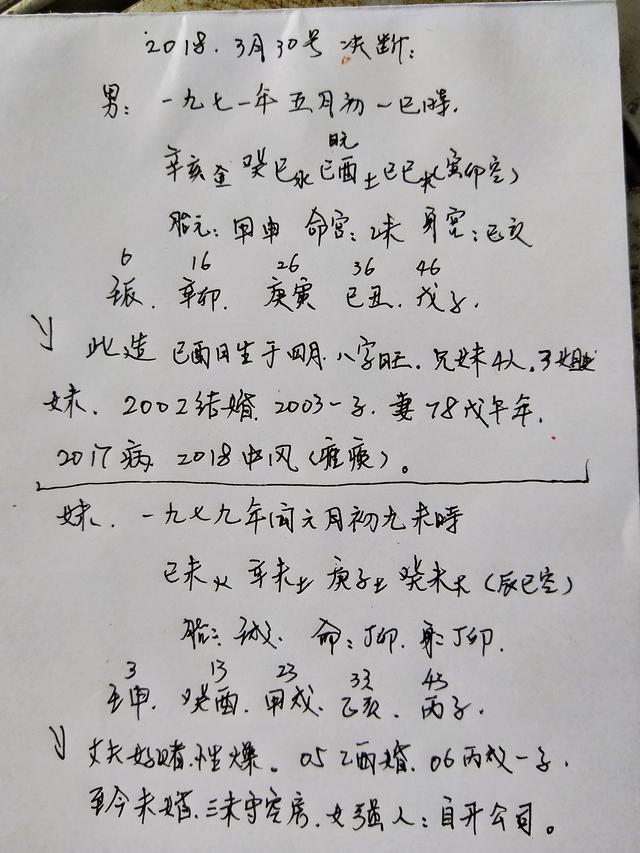 2018.3月30号 决断:
男: 一九七一年五月初一巳時.
日元
辛亥金 癸巳水 己酉土 己巳木(寅卯空)
胎元: 甲申 命宫: 乙未 身宫: 己亥
6 16 26 36 46
壬辰. 辛卯. 庚寅 己丑. 戊子.
此造 己酉日生于四月. 八字旺. 兄妹4人. 3姐
妹. 2002结婚 2003一子. 妻78戊午年.
2017病. 2018中风(瘫痪)。
妹. 一九七九年闰六月初九未時
己未火 辛未土 庚子土 癸未木 (辰巳空)
胎: 壬戌. 命: 丁卯. 身: 丁卯.
3 13 23 33 43
壬申. 癸酉. 甲戌. 乙亥. 丙子.
丈夫好赌. 性燥。 05乙酉婚. 06丙戌一子.
至今未婚. 三未守空房. 女强人: 自开公司。